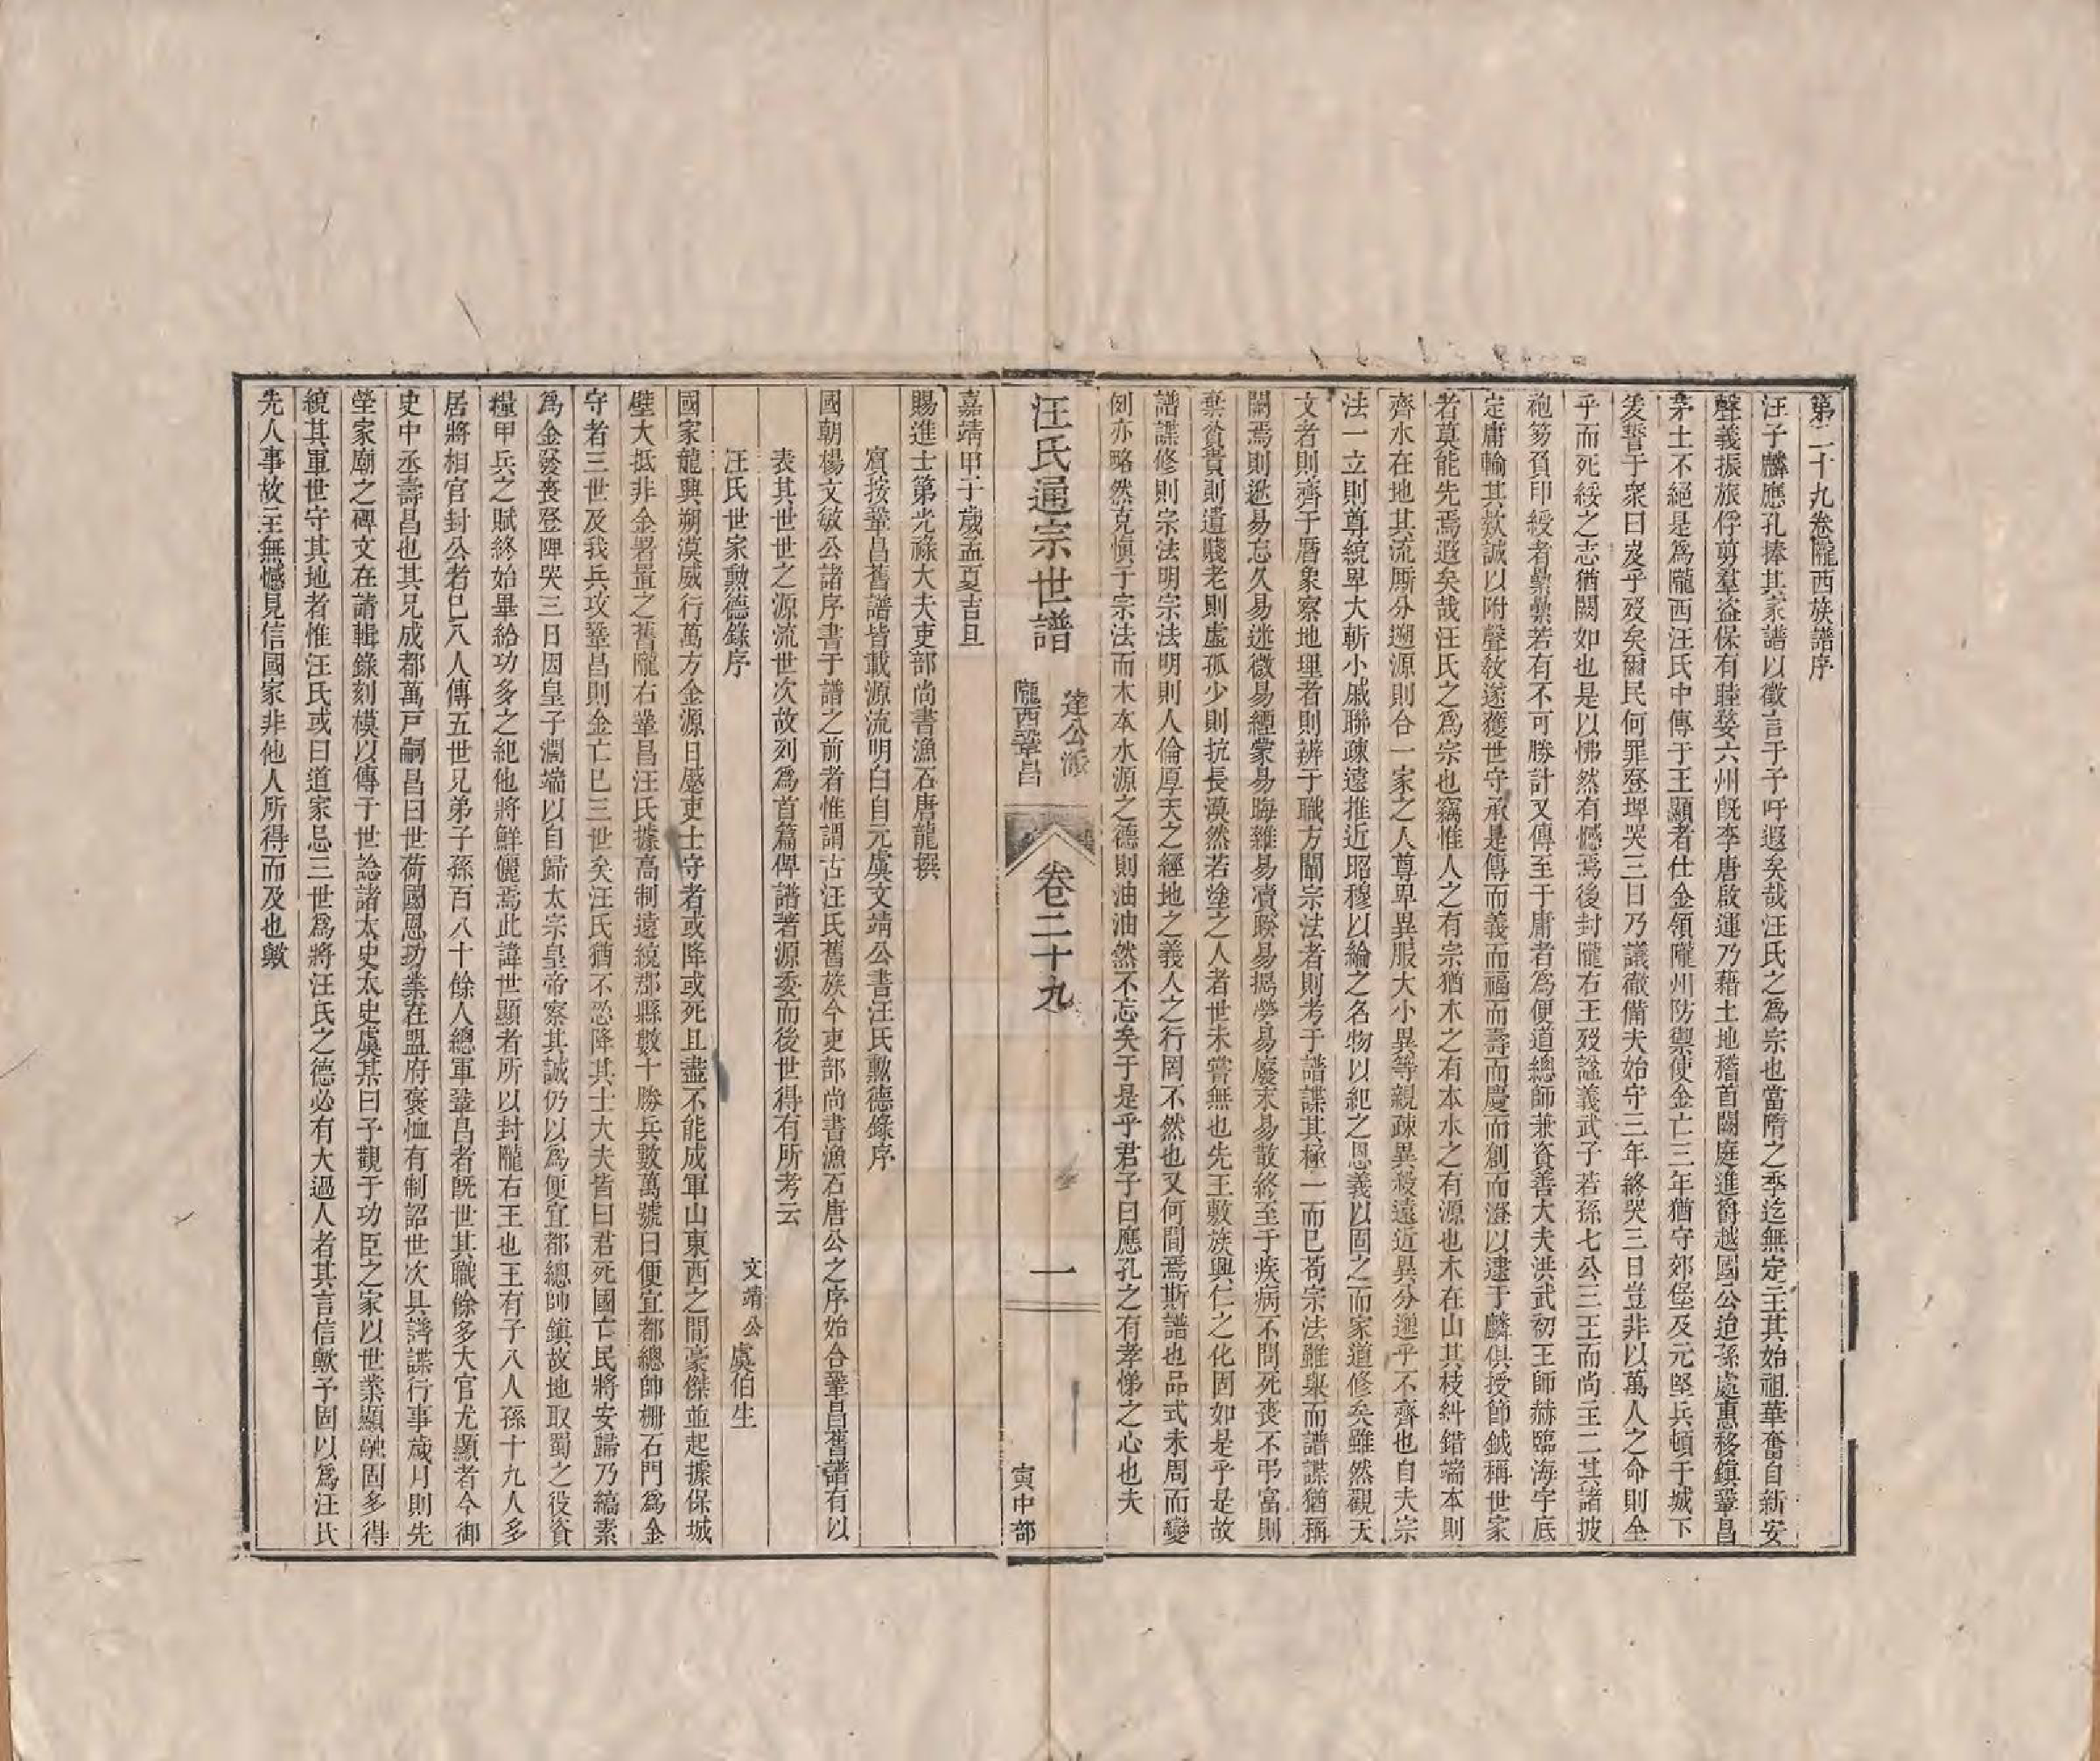 第二十九卷隴西族譜序
汪子麟應孔捧其家譜以徵言于予吁遐矣哉汪氏之爲宗也當隋之季迄無定主其始祖華奮自新安
聲義振旅俘剪羣盜保有睦婺六州旣李唐啟運乃藉土地稽首闕庭進爵越國公迨孫處惠移鎮鞏昌
茅土不絕是爲隴西汪氏中傳于王顯者仕金領隴州防禦使金亡三年猶守郊堡及元堅兵頓于城下
爰誓于衆曰岌乎殁矣爾民何罪登埤哭三日乃議徹備夫始守三年終哭三日豈非以萬人之命則全
乎而死綏之志猶闕如也是以怫然有憾焉後封隴右王殁諡義武子若孫七公三王而尚主二其諸披
袍笏負印綬者纍纍若有不可勝計又傳至于庸者爲便道總師兼資善大夫洪武初王師赫臨海宇底
定庸輸其欵誠以附聲敎遂獲世守承是傳而義而福而壽而慶而創而澄以逮于麟俱授節鉞稱世家
者莫能先焉遐矣哉汪氏之爲宗也竊惟人之有宗猶木之有本水之有源也木在山其枝糾錯端本則
齊水在地其流厮分遡源則合一家之人尊卑異服大小異等親疎異殺遠近異分邈乎不齊也自夫宗
法一立則尊統卑大斬小戚聯疎遠推近昭穆以綸之名物以紀之恩義以固之而家道修矣雖然觀天
文者則齊于曆象察地理者則辨于職方闡宗法者則考于譜諜其極一而已苟宗法雖衆而譜諜猶稱
闕焉則逖易忘久易迷微易緸蒙易晦雜易瀆睽易揭勞易廢末易散終至于疾病不問死喪不弔富則
棄貧貴則遺賤老則虛孤少則抗長漠然若塗之人者世未嘗無也先王敷族興仁之化固如是乎是故
譜諜修則宗法明宗法明則人倫厚天之經地之義人之行罔不然也又何間焉斯譜也品式未周而變
例亦略然克愼于宗法而木本水源之德則油油然不忘矣于是乎君子曰應孔之有孝悌之心也夫
汪氏通宗世譜
達公派
隴西鞏昌
卷二十九
一
寅中部
嘉靖甲子歲孟夏吉旦
賜進士第光祿大夫吏部尚書漁石唐龍撰
賔按鞏昌舊譜皆載源流明白自元虞文靖公書汪氏勲德錄序
國朝楊文敏公諸序書于譜之前者惟謂古汪氏舊族今吏部尚書漁石唐公之序始合鞏昌舊譜有以
表其世世之源流世次故列爲首篇俾譜著源委而後世得有所考云
汪氏世家勲德錄序
文靖公虞伯生
國家龍興朔漠威行萬方金源日蹙吏士守者或降或死且盡不能成軍山東西之間豪傑並起據保城
壁大抵非金署置之舊隴右鞏昌汪氏據高制遠統郡縣數十勝兵數萬號曰便宜都總帥柵石門爲金
守者三世及我兵攻鞏昌則金亡已三世矣汪氏猶不恐降其士大夫皆曰君死國亡民將安歸乃縞素
爲金發喪登陴哭三日因皇子濶端以自歸太宗皇帝察其誠仍以爲便宜都總帥鎮故地取蜀之役資
糧甲兵之賦終始畢給功多之紀他將鮮儷焉此諱世顯者所以封隴右王也王有子八人孫十九人多
居將相官封公者已八人傳五世兄弟子孫百八十餘人總軍鞏昌者旣世其職餘多大官尤顯者今御
史中丞壽昌也其兄成都萬戸嗣昌曰世荷國恩功業在盟府褒恤有制詔世次具譜諜行事歲月則先
塋家廟之碑文在請輯錄刻模以傳于世諗諸太史太史虞某曰予觀于功臣之家以世業顯融固多得
統其軍世守其地者惟汪氏或曰道家忌三世爲將汪氏之德必有大過人者其言信歟予固以爲汪氏
先人事故主無憾見信國家非他人所得而及也歟